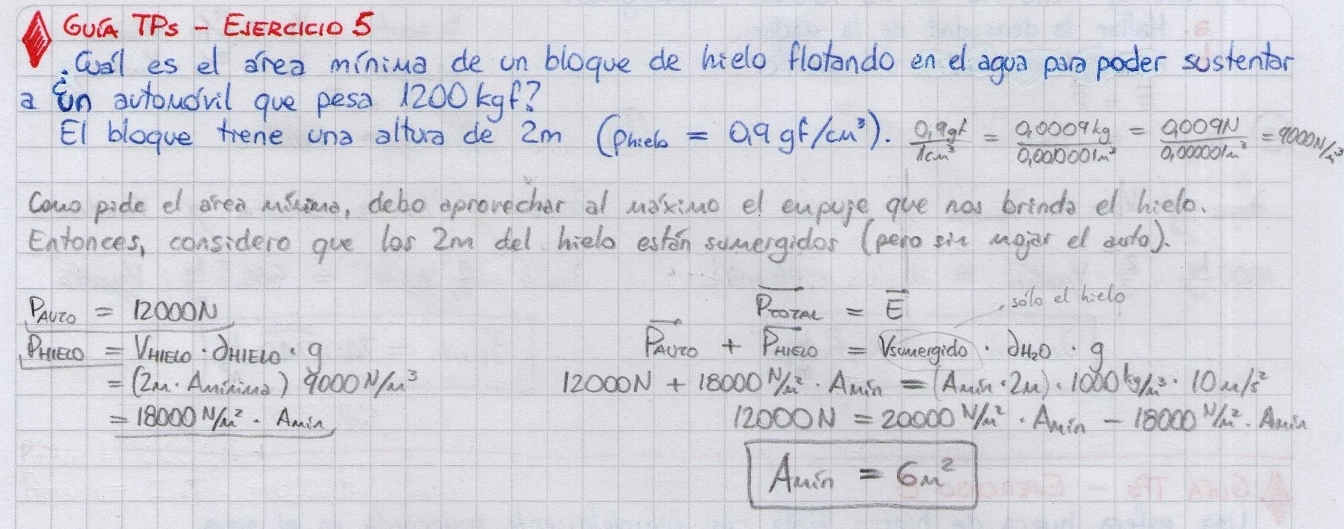 GUÍA TPs - EJERCICIO 5
¿Cuál es el área mínima de un bloque de hielo flotando en el agua para poder sustentar
a un automóvil que pesa 1200 kgf?
El bloque tiene una altura de 2m (ρhielo = 0,9 gf/cm³). 0,9gf/1cm³ = 0,0009kg/0,000001m³ = 0,009N/0,000001m³ = 9000N/m³
Como pide el área mínima, debo aprovechar al máximo el empuje que nos brinda el hielo.
Entonces, considero que los 2m del hielo están sumergidos (pero sin mojar el auto).
PAUTO = 12000N
PHIELO = VHIELO · ∂HIELO · g
= (2m · Amínima) 9000 N/m³
= 18000 N/m² · Amín
PTOTAL = E
sólo el hielo
PAUTO + PHIELO = Vsumergido · ∂H₂O · g
12000N + 18000 N/m² · Amín = (Amín · 2m) · 1000 kg/m³ · 10 m/s²
12000N = 20000 N/m² · Amín - 18000 N/m² · Amín
Amín = 6m²